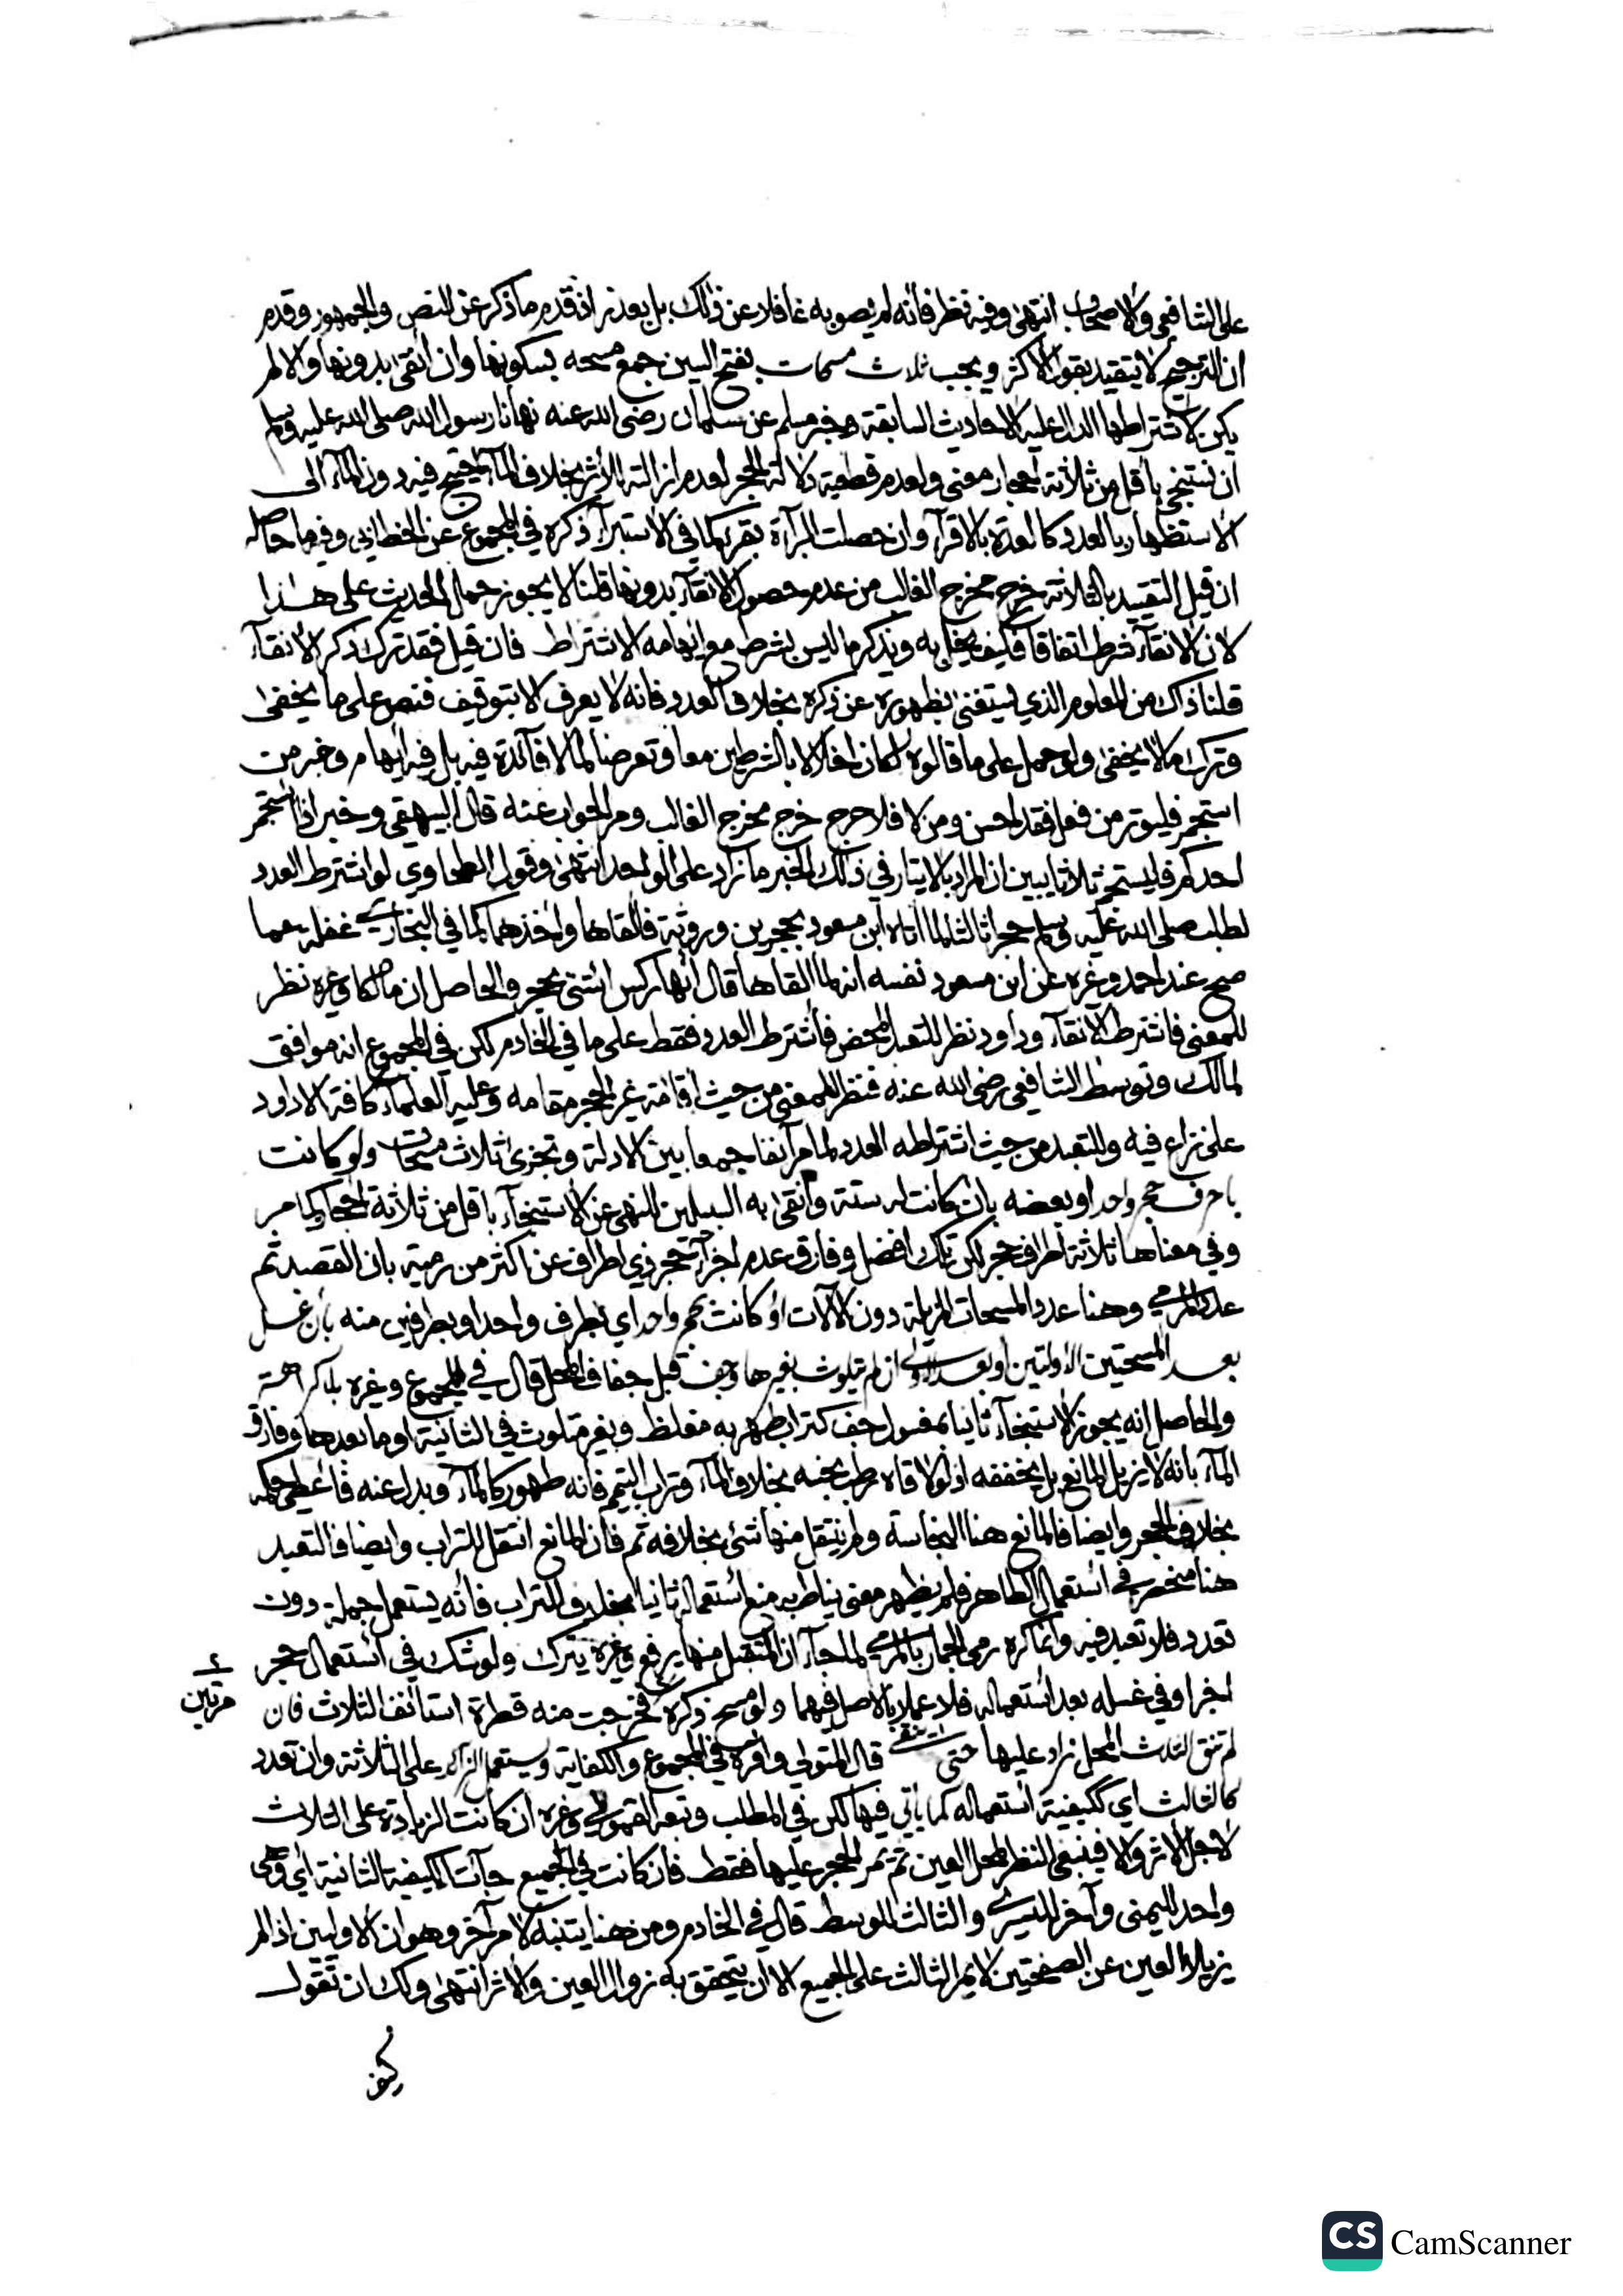 على الشافعي والاصحاب انتهى وفيه نظر فانه لم يصوبه غافلا عن ذلك بل بعد ان قدم ما ذكر عن النص والجمهور وقدم
ان الترجيح لا يتقيد بقول الاكثر ويجب ثلاث مسحات بفتح السين جمع مسحه بسكونها وان انقى بدونها والا لم
يكن لاشتراطها الدال عليه الاحاديث السابقة وخبر مسلم عن سلمان رضي الله عنه نهانا رسول الله صلى الله عليه وسلم
ان نستنجي باقل من ثلاثة احجار معنى ولعدم قطعية دلالة الحجر لعدم ازالته الأثر بخلاف الماء احتيج فيه دون الماء الى
الاستظهار بالعدد كالعدة بالاقرآء وان حصلت البرآءة بقرء كما في الاستبرآء ذكره في المجموع عن الخطابي وفيه ما حاصله
ان قيل التقييد بالثلاثة خرج مخرج الغالب من عدم حصول الانقآء بدونها قلنا لا يجوز حمل الحديث على هذا
لان الانقآء شرط اتفاقا فكيف يخل به ويذكر ما ليس بشرط مع ايهامه الاشتراط فان قيل فقد ترك ذكر الانقآء
قلنا ذاك من المعلوم الذي يستغنى بظهوره عن ذكره بخلاف العدد فانه لا يعرف الا بتوقيف فنص على ما يخفى
وترك ما لا يخفى ولو حمل على ما قالوه لكان اخلالا بالشرطين معا وتعرضا لما لا فآئدة فيه بل فيه ايهام وخبر من
استجمر فليوتر من فعل فقد احسن ومن لا فلا حرج خرج مخرج الغالب ومر الجواب عنه قال البيهقي وخبر اذا استجمر
احدكم فليستجمر ثلاثا يبين ان المراد بالايتار في ذلك الخبر ما زاد على الواحد انتهى وقول الطحاوي لو اشترط العدد
لطلب صلى الله عليه وسلم حجرا ثالثا لما اتاه ابن مسعود بحجرين وروثة فالقاها واخذهما كما في البخاري غفلة عما
صح عند احمد وغيره عن ابن مسعود نفسه انه لما القاها قال انها ركس ائتني بحجر والحاصل ان مالكا وغيره نظر
للمعنى فاشترط الانقآء وداود نظر للتعبد المحض فاشترط العدد فقط على ما في الخادم لكن في المجموع انه موافق
لمالك وتوسط الشافعي رضي الله عنه فنظر للمعنى من حيث اقامة غير الحجر مقامه وعليه العلمآء كافة الا داود
على نزاع فيه وللتعبد من حيث اشتراطه العدد لما مر آنفا جمعا بين الادلة وتجزى ثلاث مسحات ولو كانت
باحرف حجر واحد او بعضه بان كانت له ستة وانقى به السبيلين للنهي عن الاستنجآء باقل من ثلاثة احجار كما مر
وفي معناها ثلاثة اطراف حجر لكن تلك افضل وفارق عدم اجزآء حجر ذي اطراف عن اكثر من رمية بان القصد ثم
عدد الرمي وهنا عدد المسحات المزيلة دون الآلات او كانت بحجر واحد اي بطرف واحد او بطرفين منه بان غسل
بعد المسحتين الاولتين او بعد الاولى ان لم تتلوث بغيرها وجف قبل جفاف المحل قال في المجموع وغيره بلا كراهة
والحاصل انه يجوز الاستنجآء ثانيا بمغسول جف كتراب طهر به مغلظ وبغير متلوث في الثانية او ما بعدها وفارق
المآء بانه لا يزيل المانع بل يخففه اذ لو لاقاه رطب نجسه بخلاف المآء وتراب التيمم فانه طهور كالمآء وبدل عنه فاعطي حكمه
بخلاف الحجر وايضا فالمانع هنا النجاسة ولم ينتقل منها شئ بخلافه ثم فان المانع انتقل للتراب وايضا فالتعبد
هنا منحصر في استعمال الطاهر فلم يظهر معنى يناط به منع استعماله ثانيا بخلاف التراب فانه يستعمل جملة دون
تعدد فلا تعبد فيه وانما كره رمي الجمار بالمرمي لما جآء ان المتقبل منها يرفع وغيره يترك ولو شك في استعمال حجر
اخر او في غسله بعد استعماله فلا عملا بالاصل فيهما ولو مسح ذكره فخرجت منه قطرة استانف الثلاث فان
مرتين
لم تنق الثلاث المحل زاد عليها حتى ينقى قال المتولي واقره في المجموع والكفاية ويستعمل الزائد على الثلاثة وان تعدد
كالثالث اي ككيفية استعماله كما يأتي فيها لكن في المطلب وتبعه القمولي وغيره ان كانت الزيادة على الثلاث
لاجل الاثر والا فينبغي النظر لمحل العين ثم يمر الحجر عليها فقط فان كانت في الجميع جآءت الكيفية الثانية اي وهي
واحد لليمنى وآخر لليسرى والثالث للوسط قال في الخادم ومن هنا يتنبه لامر آخر وهو ان الاولين اذا لم
يزيلا العين عن الصفحتين لا يمر الثالث على الجميع الا ان يتحقق به زوال العين والاثر انتهى ولك ان تقول
CS CamScanner